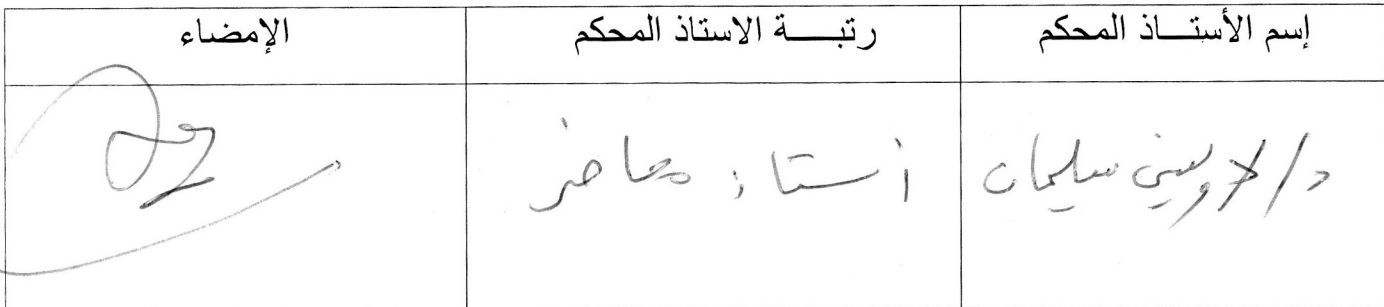 إسم الأستـــاذ المحكم رتبـــــة الاستاذ المحكم الإمضاء
د/ لاوسين سليمان أستاذ محاضر